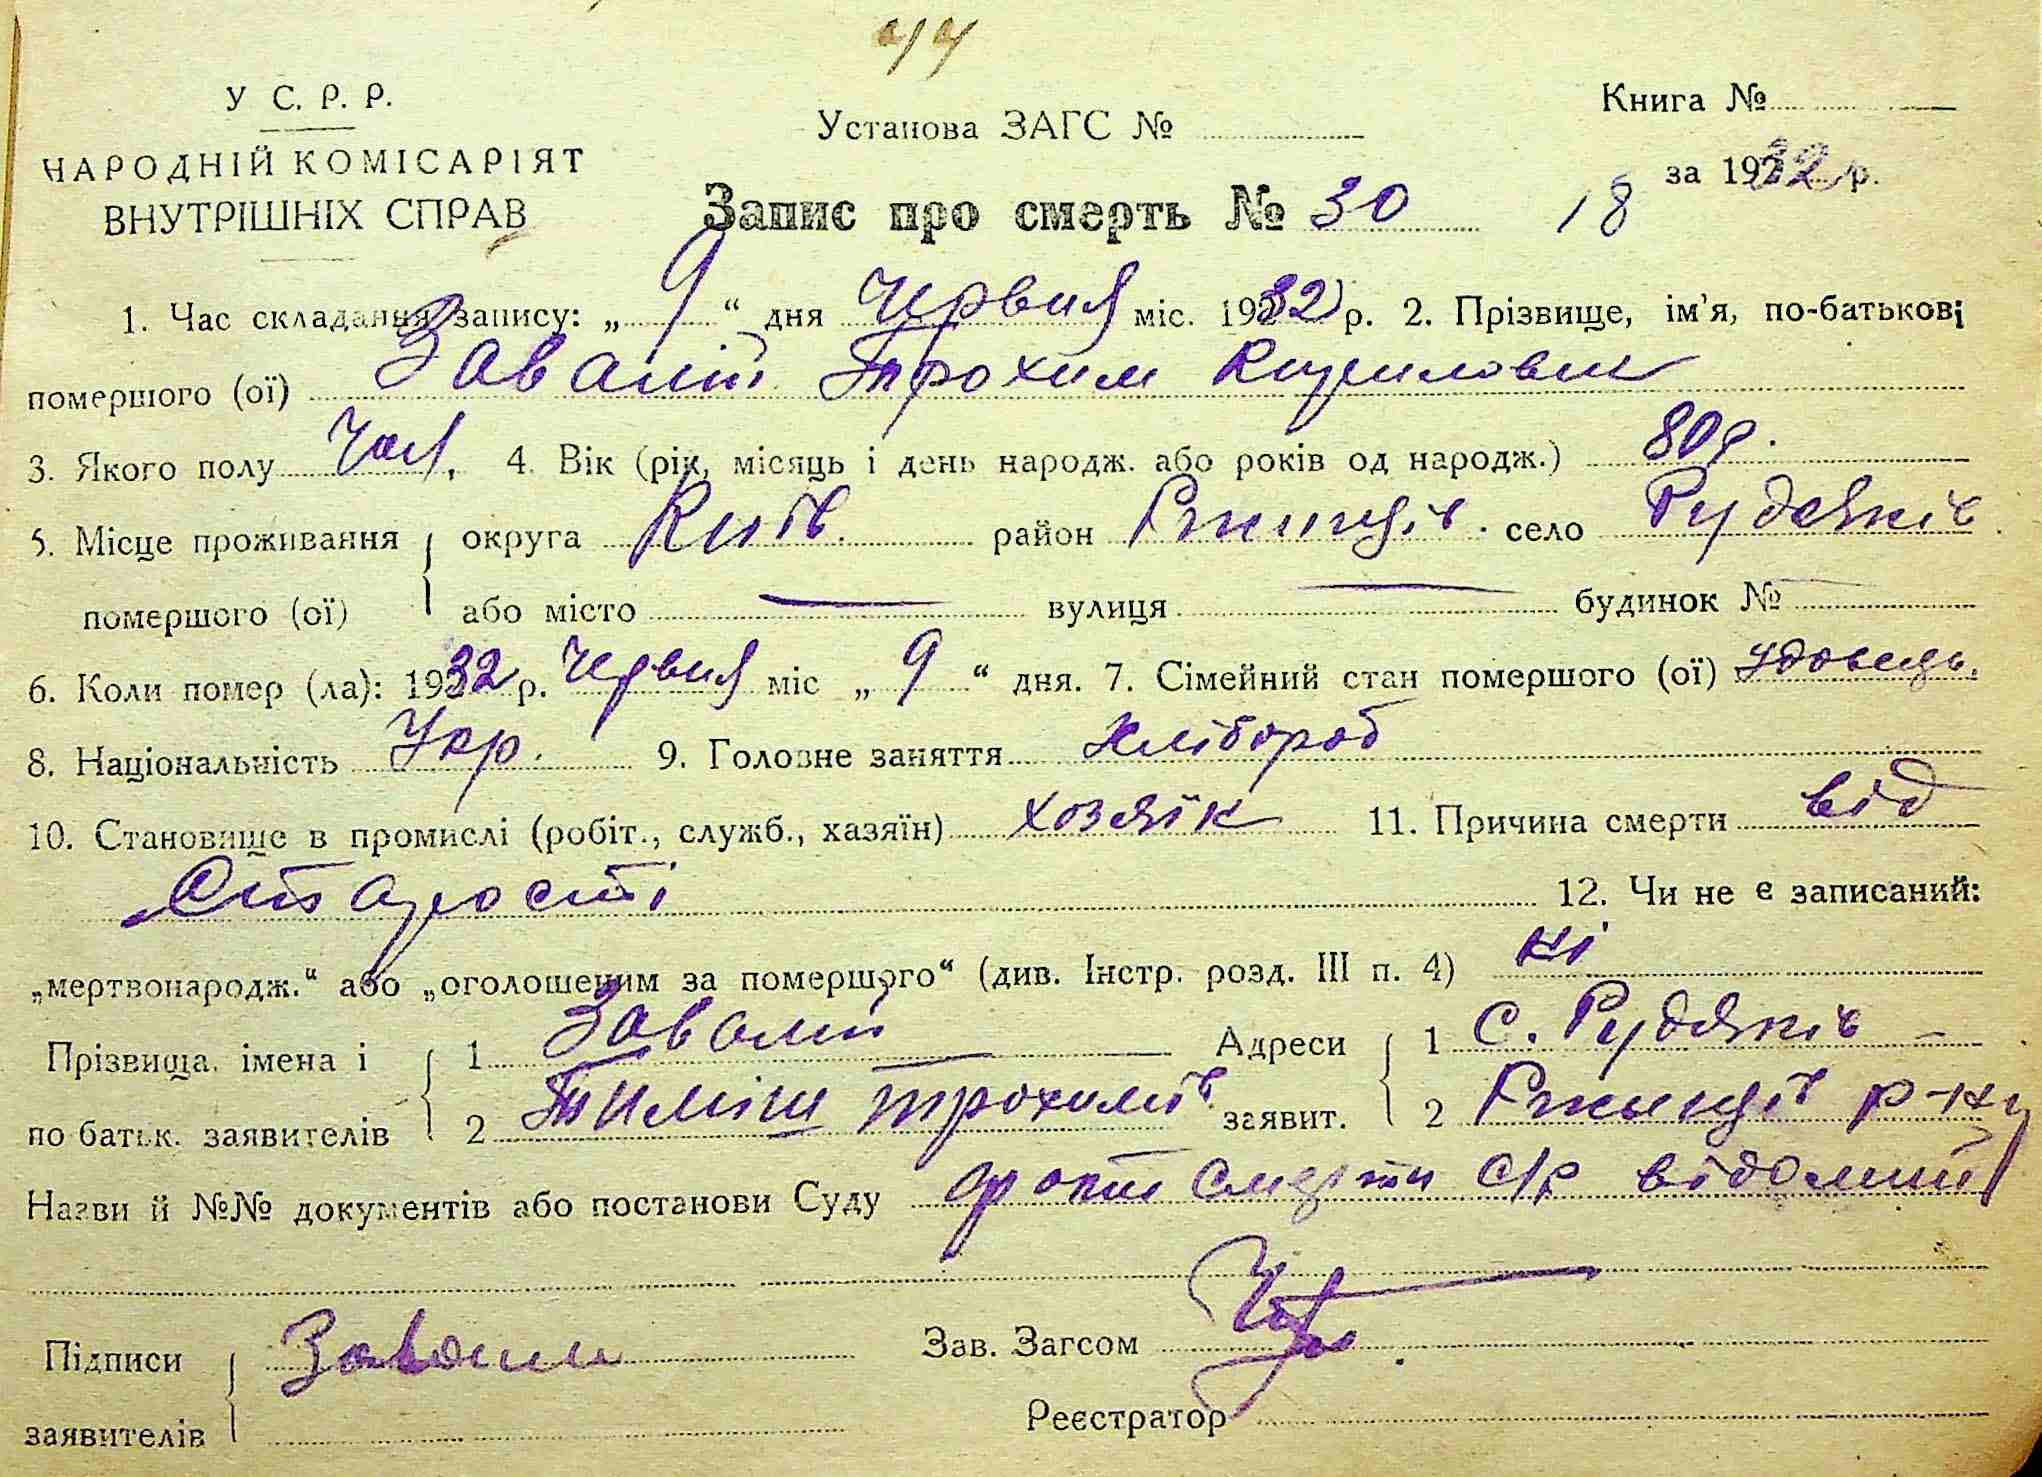 44
У С. Р. Р.
НАРОДНІЙ КОМІСАРІЯТ
ВНУТРІШНІХ СПРАВ
Установа ЗАГС №
Книга №
за 1932 р.
Запис про смерть № 30 18
1. Час складання запису: „ 9 “ дня Червня міс. 1932 р. 2. Прізвище, ім'я, по-батькові
помершого (ої) Завалій Трохим Кирилович
3. Якого полу Чол, 4. Вік (рік, місяць і день народж. або років од народж.) 80р.
5. Місце проживання округа Київ. район Ржищів. село Рудяків
помершого (ої) або місто — вулиця — будинок №
6. Коли помер (ла): 1932 р. Червня міс „ 9 “ дня. 7. Сімейний стан помершого (ої) удовець.
8. Національність Укр. 9. Головне заняття Хлібороб
10. Становище в промислі (робіт., служб., хазяїн) хозяїн 11. Причина смерти від
Старості 12. Чи не є записаний:
„мертвонародж.“ або „оголошеним за помершого“ (див. Інстр. розд. III п. 4) ні
Прізвища, імена і 1 Завалій Адреси 1 с. Рудяків –
по батьк. заявителів 2 Тиміш Трохимів заявит. 2 Ржищів р-ну
Назви й №№ документів або постанови Суду факт смерти с/р відомий
Підписи Завалий Зав. Загсом
заявителів Реєстратор